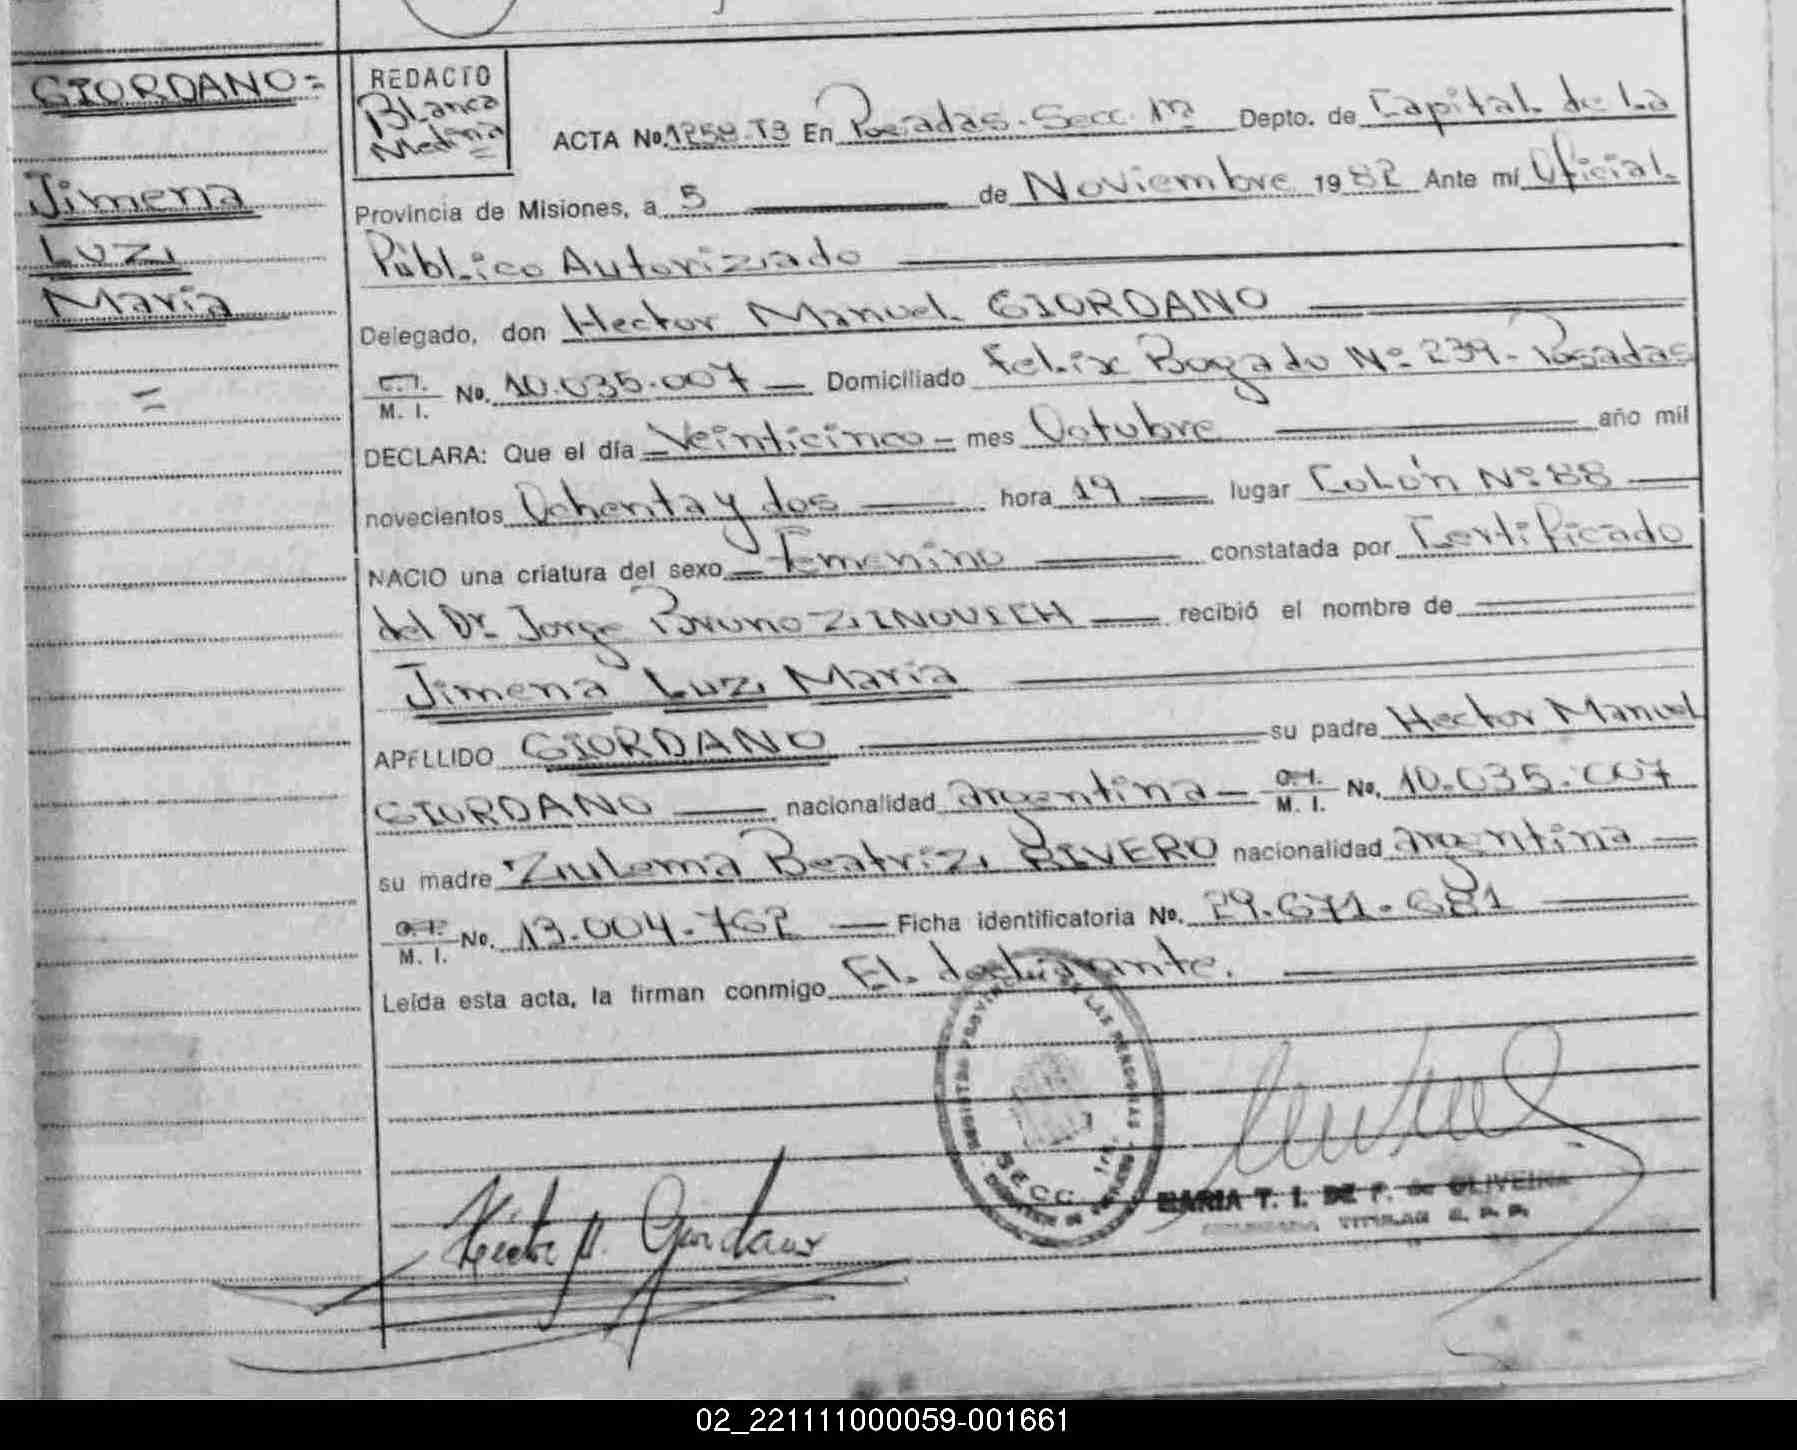 GIORDANO=
Jimena
Luz
María
=
REDACTO
Blanca
Medina
=
ACTA No. 1258-T3 En Posadas-Secc. 1ra Depto. de Capital de la
Provincia de Misiones, a 5 de Noviembre 1982 Ante mí Oficial
Público Autorizado
Delegado, don Hector Manuel GIORDANO
C.I.
M. I. No. 10.035.007 — Domiciliado Felix Bogado Nº 239- Posadas
DECLARA: Que el día Veinticinco — mes Octubre año mil
novecientos Ochenta y dos — hora 19 — lugar Colón Nº 88 —
NACIO una criatura del sexo Femenino — constatada por Certificado
del Dr. Jorge Bruno ZINOVICH — recibió el nombre de
Jimena Luz María
APELLIDO GIORDANO su padre Hector Manuel
GIORDANO — nacionalidad argentina — C.I.
M. I. No. 10.035.007
su madre Zulema Beatriz RIVERO nacionalidad argentina —
C.I.
M. I. No. 13.004.762 — Ficha identificatoria No. 29.671.681
Leída esta acta, la firman conmigo El declarante.
REGISTRO PROVINCIAL DE LAS PERSONAS
SECC. 1ra.
Héctor M. Giordano
MARIA T. I. DE F. de OLIVEIRA
TITULAR R. P. P.
02_221111000059-001661